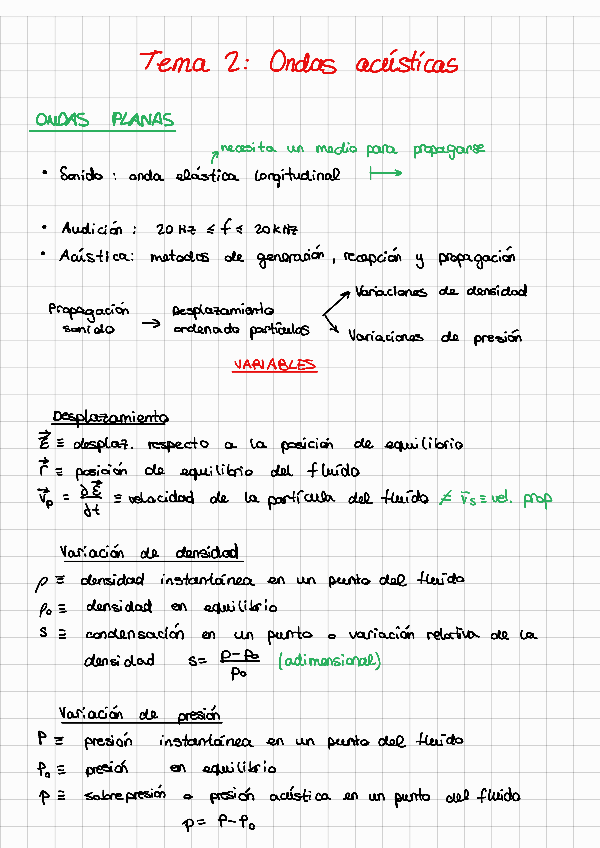 Tema 2: Ondas acústicas
ONDAS PLANAS
necesita un medio para propagarse
• Sonido : onda elástica longitudinal
• Audición : 20 Hz ≤ f ≤ 20 kHz
• Acústica: metodos de generación, recepción y propagación
Variaciones de densidad
Propagación sonido → Desplazamiento ordenado partículas
Variaciones de presión
VARIABLES
Desplazamiento
ε⃗ ≡ desplaz. respecto a la posición de equilibrio
r⃗ ≡ posición de equilibrio del fluido
v⃗p = ∂ε⃗/∂t ≡ velocidad de la partícula del fluido ≠ v⃗s ≡ vel. prop
Variación de densidad
ρ ≡ densidad instantánea en un punto del fluido
ρ₀ ≡ densidad en equilibrio
s ≡ condensación en un punto o variación relativa de la
densidad s = (ρ-ρ₀)/ρ₀ (adimensional)
Variación de presión
P ≡ presión instantánea en un punto del fluido
P₀ ≡ presión en equilibrio
p ≡ sobrepresión o presión acústica en un punto del fluido
p = P-P₀